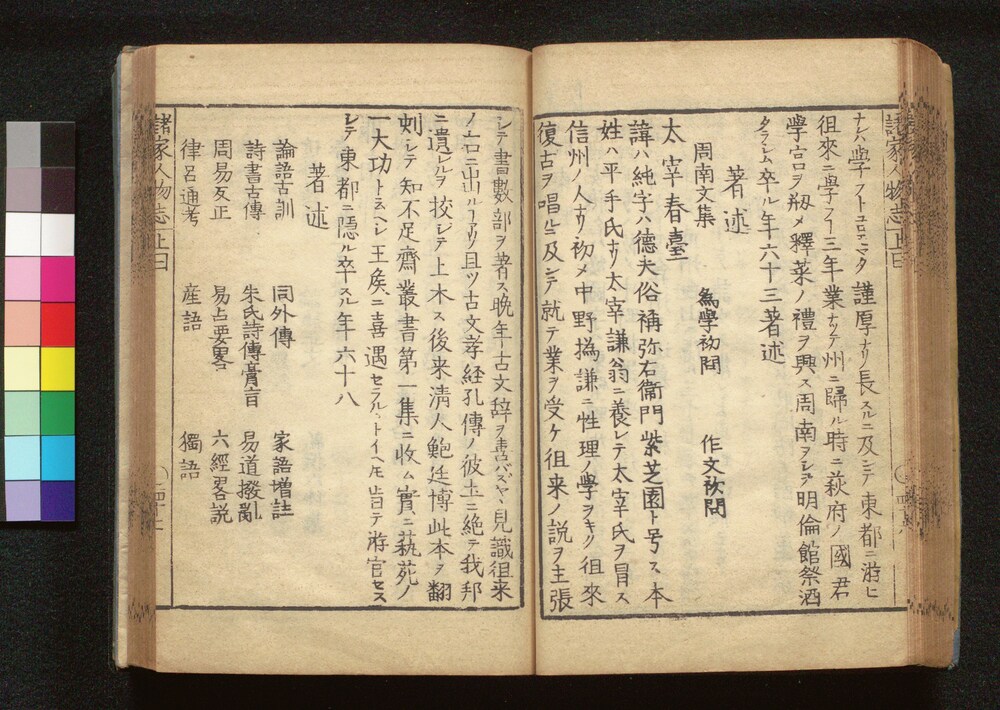 ナレハ學フトコロニマタ謹厚ナリ長スルニ及シテ東都ニ游ヒ
徂來ニ學フ三年業ナツテ州ニ歸ル時ニ萩府ノ國君
學宮ヲ剏メ釋菜ノ禮ヲ興ス周南ヲシテ明倫館祭酒
タラシム卒ル年六十三著述
著述
周南文集 為學初問 作文初問
太宰春臺
諱ハ純字ハ德夫俗稱弥右衞門紫芝園ト号ス本
姓ハ平手氏ナリ太宰謙翁ニ養レテ太宰氏ヲ冒ス
信州ノ人ナリ初メ中野撝謙ニ性理ノ學ヲキク徂來
復古ヲ唱ルニ及シテ就テ業ヲ受ケ徂来ノ説ヲ主張
シテ書數部ヲ著ス晩年古文辞ヲ喜バズヤヽ見識徂来
ノ右ニ出ルアリ且ツ古文孝経孔傳ノ彼土ニ絶テ我邦
ニ遺レルヲ挍シテ上木ス後来清人鮑廷博此本ヲ翻
刺シテ知不足齋叢書第一集ニ收ム實ニ藝苑ノ
一大功ト云ヘシ王矦ニ喜遇セラルヽトイヘモ肯テ游官セス
シテ東都ニ隠ル卒スル年六十八
著述
論語古訓 同外傳 家語增註
詩書古傳 朱氏詩傳膏肓 易道撥亂
周易反正 易占要畧 六經畧説
律呂通考 産語 獨語
諸家人物志上曰